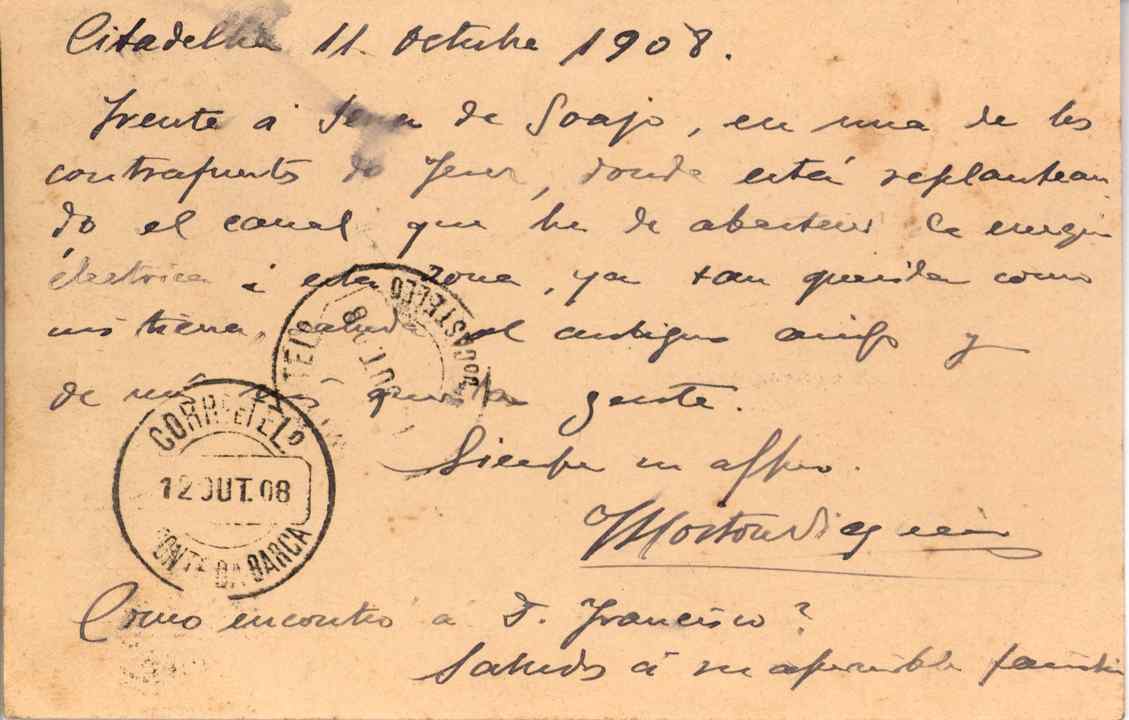 Citadelha 11 Octubre 1908.
Frente á de Soajo, en una de los
contrafuertes do Jerez, donde está replantean
do el canal que ha de abastecer la energia
électrica á esta zona, ya tan querida como
mi tierra, saluda al antiguo amigo y
de más querida gente.
Siempre su affmo.
Como encontró á D. Francisco?
Saludos á su apreciable familia
CORR. E TELº
12 OUT. 08
PONTE DA BARCA
TELº
8 OUT
DO CASTELLO